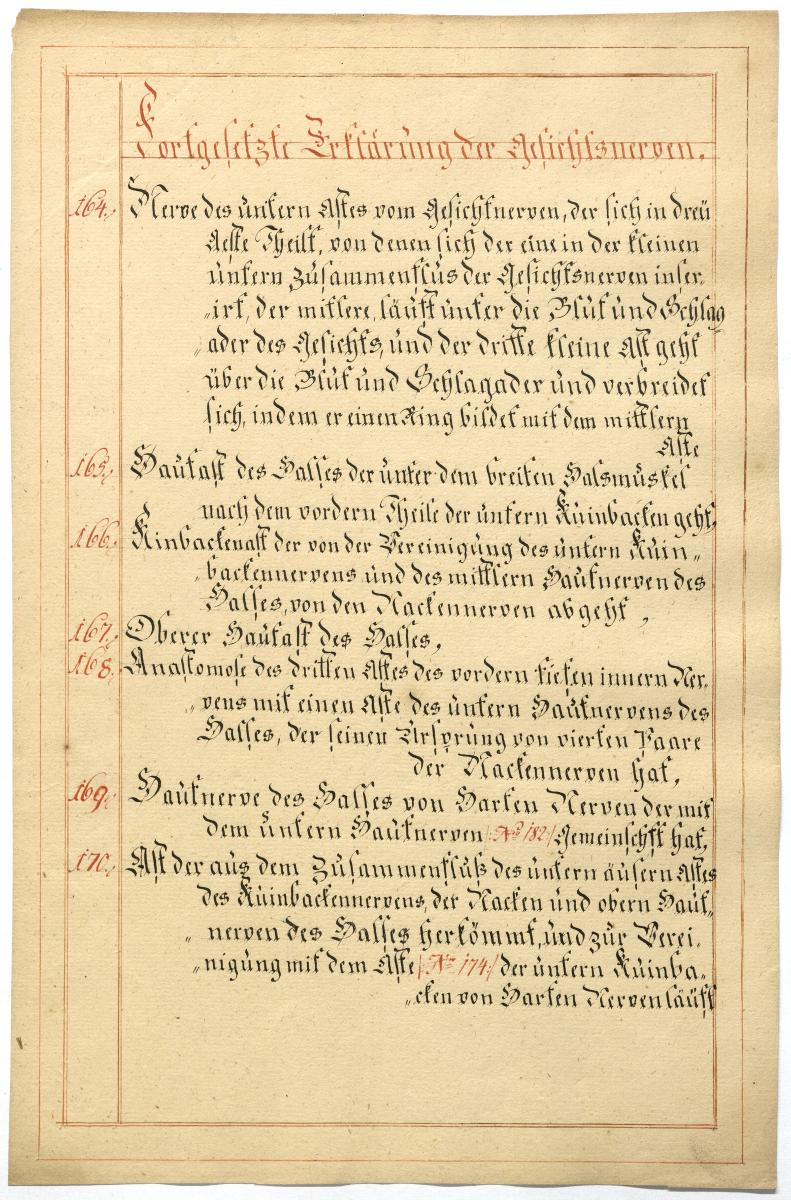 Fortgesetzte Erklärung der Gesichtsnerven.
164. Nerve des untern Astes vom Gesichtnerven, der sich in dreü
Aeste Theilt, von denen sich der eine in der kleinen
untern Zusammenflus der Gesichtsnerven inser-
„irt, der mittlere, läuft unter die Blut und Schlag
„ader des Gesichts, und der dritte kleine Ast geht
über die Blut und Schlagader und verbreidet
sich, indem er einen Ring bildet mit dem mittlern
Aste
165. Hautast des Halses der unter dem breiten Halsmuskel
nach dem vordern Theile der untern Kuinbacken geht,
166. Kinbackenast der von der Vereinigung des untern Kuin„
„backennervens und des mittlern Hautnerven des
Halses, von den Nackennerven abgeht,
167. Oberer Hautast des Halses,
168. Anastomose des dritten Astes des vordern tiefen innern Ner„
„vens mit einen Aste des untern Hautnervens des
Halses, der seinen Ursprung von vierten Paare
der Nackennerven hat,
169. Hautnerve des Halses von Harten Nerven der mit
dem untern Hautnerven /:No 182:/ Gemeinschft hat,
170. Ast der aus dem Zusammenfluß des untern äusern Astes
des Kuinbackennervens, der Nacken und obern Haut„
„nerven des Halses herkömmt, und zur Verei„
„nigung mit dem Aste /:No 174:/ der untern Kuinba„
„cken von Harten Nerven läuft